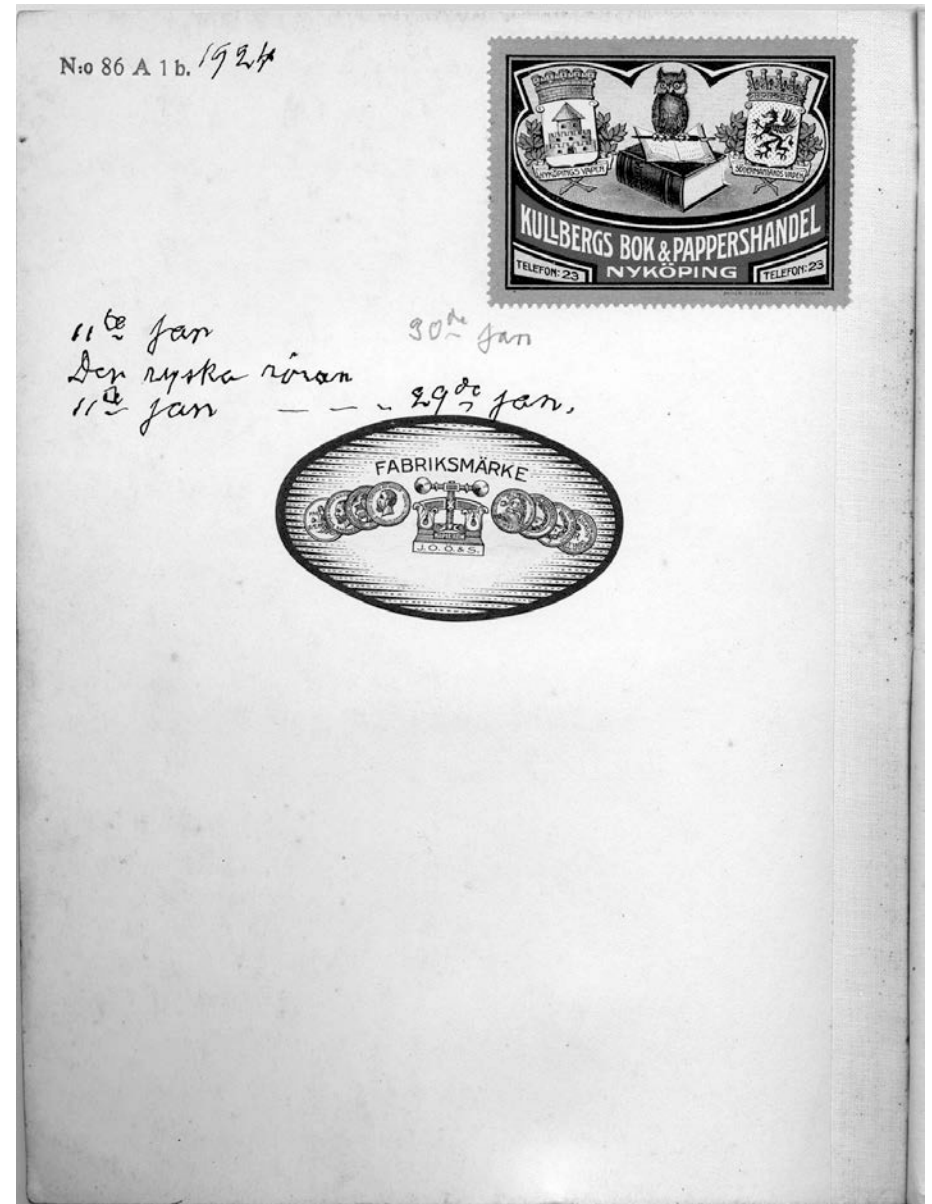 N:o 86 A 1 b. 1924
NYKÖPINGS VAPEN
SÖDERMANLANDS VAPEN
KULLBERGS BOK & PAPPERSHANDEL
TELEFON: 23
NYKÖPING
TELEFON: 23
11te jan 30de jan
Den ryska röran
11te jan — — - 29de jan.
FABRIKSMÄRKE
J.O.Ö.& S.